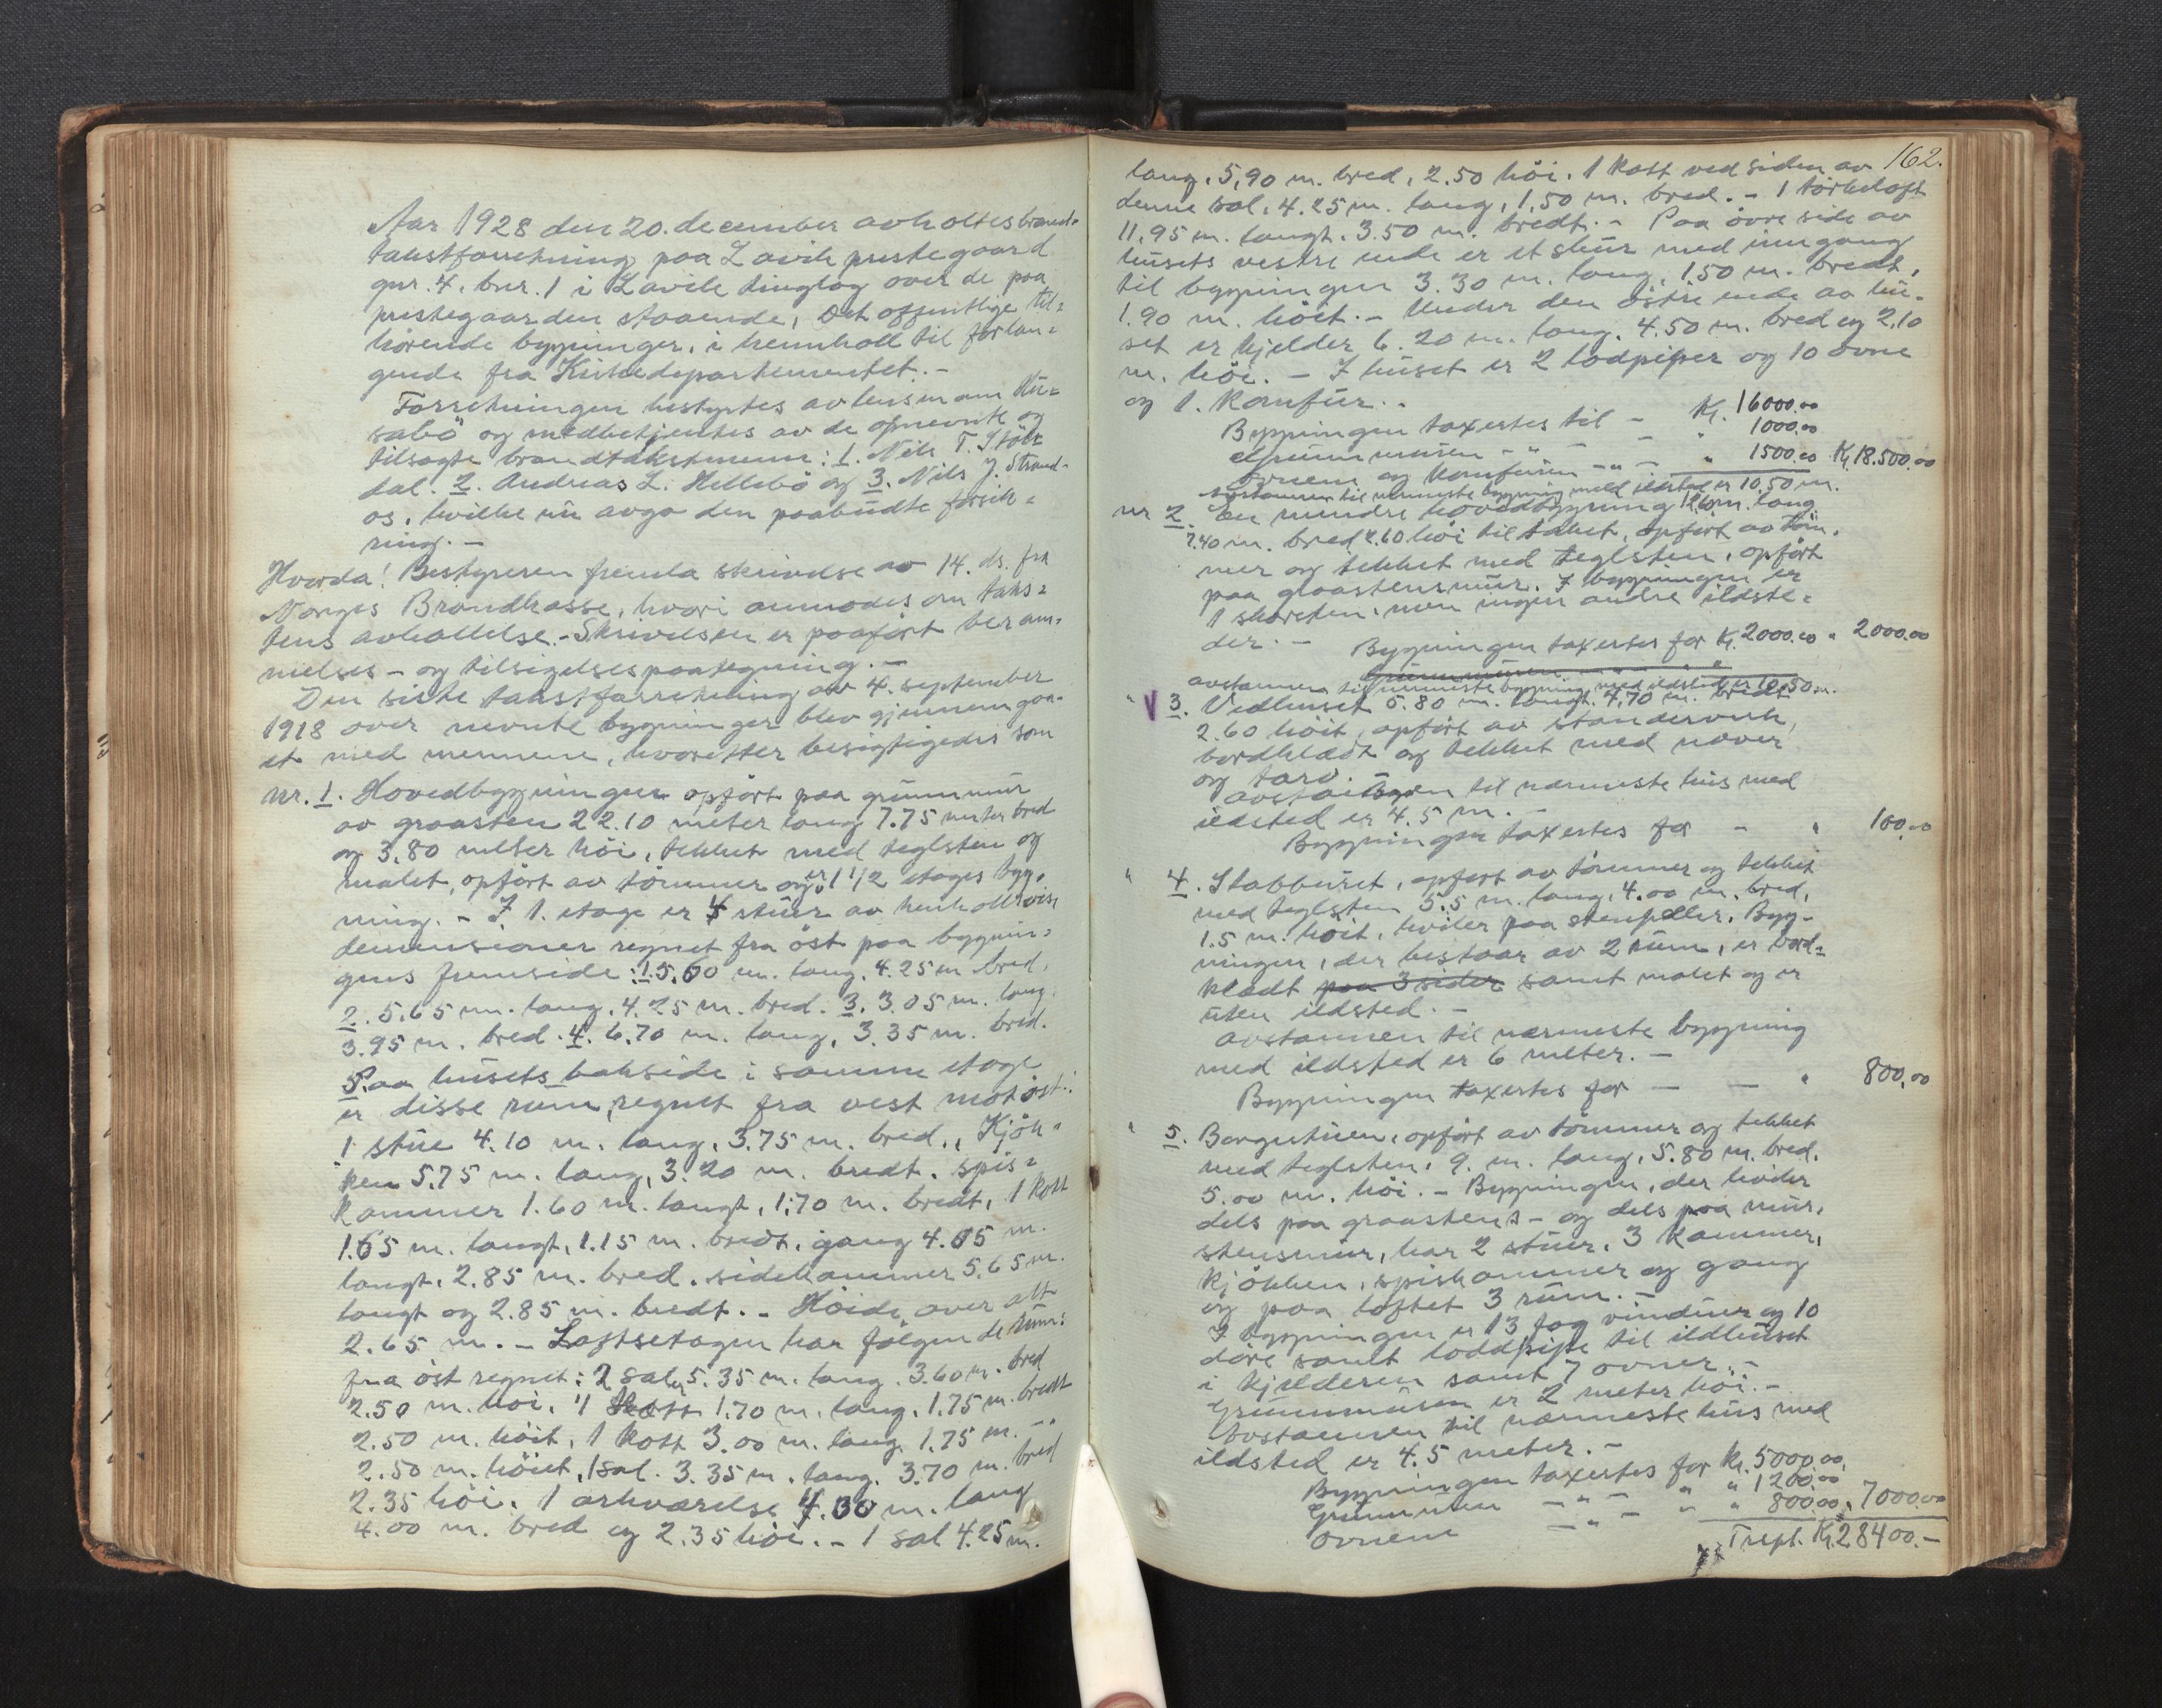 Aar 1928 den 20. december avholtes brand-
takstforretning paa Lavik prestegaard
gnr. 4, bnr. 1 i Lavik tinglag over de paa
prestegaarden staaende, det offentlige til=
hørende bygninger, i henhold til forlan=
gende fra Kirkedepartementet. -
Forretningen bestyrtes av lensmann
og medbetjentes av de opnevnte og
tilsagte brandtakstmenn: 1. Nils T.
dal. 2. Andreas L. Hellebö og 3. Nils J. Strand-
os, hvilke nu avga den paabudte forsik=
ring. -
Hvorda! Bestyreren fremla skrivelse av 14. ds. fra
Norges Brandkasse, hvori anmodes om taks=
tens avholdelse. - Skrivelsen er paaført beram-
melses- og tilsigelsespaategning. -
Den siste takstforretning av 4. september
1918 over nevnte bygninger blev gjennemgaa-
et med mennene, hvorefter besigtigedes som
nr. 1. Hovedbygningen opført paa grunnmur
av graasten 22.10 meter lang 7.75 meter bred
og 3,80 meter höi, tekket med teglsten og
malet, opført av tömmer og er 1 1/2 etages byg-
ning. - I 1. etage er 4 stuer av henholdsvis
demensioner regnet fra öst paa bygnin=
gens fremside: 1. 5.60 m. lang, 4.25 m bred,
2. 5.65 m. lang, 4.25 m. bred. 3. 3.05 m. lang,
3.95 m. bred. 4. 6.70 m. lang, 3.35 m. bred.
Paa husets bakside i samme etage
er disse rum, regnet fra vest mot öst:
1 stue 4.10 m. lang, 3.75 m. bred., Kjök-
ken 5.75 m. lang, 3.20 m. bredt, spis=
kammer 1.60 m. langt, 1.70 m. bredt, 1 kott
1.65 m. langt, 1.15 m. bredt, gang 4.65 m.
langt, 2.85 m. bred. sidekammer 5.65 m.
langt og 2.85 m. bredt. - Höide over alt
2.65 m. - Loftsetagen har følgende rum:
fra öst regnet: 2 saler 5.35 m. lang, 3.60 m. bred
2.50 m. höi, 1 kott 1.70 m. lang, 1.75 m. bredt
2.50 m. höit, 1 kott 3.00 m. lang, 1.75 m. - "
2.50 m. höiet, 1 sal. 3.35 m. lang, 3.70 m. bred
2.35 höi, 1 arkværelse 4.30 m. lang
4.00 m. bred og 2.35 höi. - 1 sal 4.25 m.
162.
lang, 5,90 m. bred, 2.50 höi, 1 kott ved siden av
denne sal, 4.25 m. lang, 1.50 m. bred. - 1 törkeloft
11,95 m. langt, 3.50 m. bredt. - Paa övre side av
husets vestre ende er et skur med inngang
til bygningen 3.30 m. lang, 1.50 m. bredt,
1.90 m. höit. - Under den östre ende av hu-
set er kjelder 6.20 m. lang, 4.50 m. bred og 2,10
m. höi. - I huset er 2 lodpiper og 10 ovne
og 1. komfur. -
Bygningen taxertes til - Kr. 16000.00
Grunnmuren - " - " 1000.00
Ovnene og komfuren - " - " 1500.00 Kr. 18.500.00
Avstannen til nærmeste bygning med ildsted er 10.50 m.
nr 2. En mindre hovedbygning 12.60 m. lang
7.40 m. bred 2.60 höi til taket, opført av töm-
mer og tekket med teglsten, opført
paa graastensmur. I bygningen er
1 skorsten, men ingen andre ildste=
der. - Bygningen taxertes for Kr. 2000.00 " 2000.00
Grunnmuren
avstannen til nærmeste bygning med ildsted er 10.50 m.
" V 3. Vedhuset 5.80 m. langt. 4,70 m. bredt
2.60 höit, opført av standerverk,
bordklædt og tekket med næver
og torv.
avstannen til nærmeste hus med
ildsted er 4.5 m. -
Bygningen taxertes for - " 100.00
" 4. Stabburet, opført av tömmer og tekket
med teglsten 5.5 m. lang, 4.00 m. bred,
1.5 m. höit, hviler paa stenpeller. Byg-
ningen, der bestaar av 2 rum, er bord=
klædt paa 3 sider samt malet og er
uten ildsted. -
Avstannen til nærmeste bygning
med ildsted er 6 meter. -
Bygningen taxertes for - - " 800,00
" 5. Borgestuen, opført av tömmer og tekket
med teglsten, 9. m. lang, 5.80 m. bred,
5.00 m. höi. - Bygningen, der hviler
dels paa graastens- og dels paa mur-
stensmur, har 2 stuer, 3 kammer,
kjökken, spiskammer og gang
og paa loftet 3 rum. -
I bygningen er 13 fag vinduer og 10
döre samt loddpipe til ildhuset
i kjelderen samt 7 ovner. -
Grunnmuren er 2 meter höi. -
Avstannen til nærmeste hus med
ildsted er 4.5 meter. -
Bygningen taxertes for kr. 5000.00,
Grunnmuren - " - " " 1200.00
Ovnene - " - " " 800.00 " 7000.00
Tilspt. Kr. 28400.-